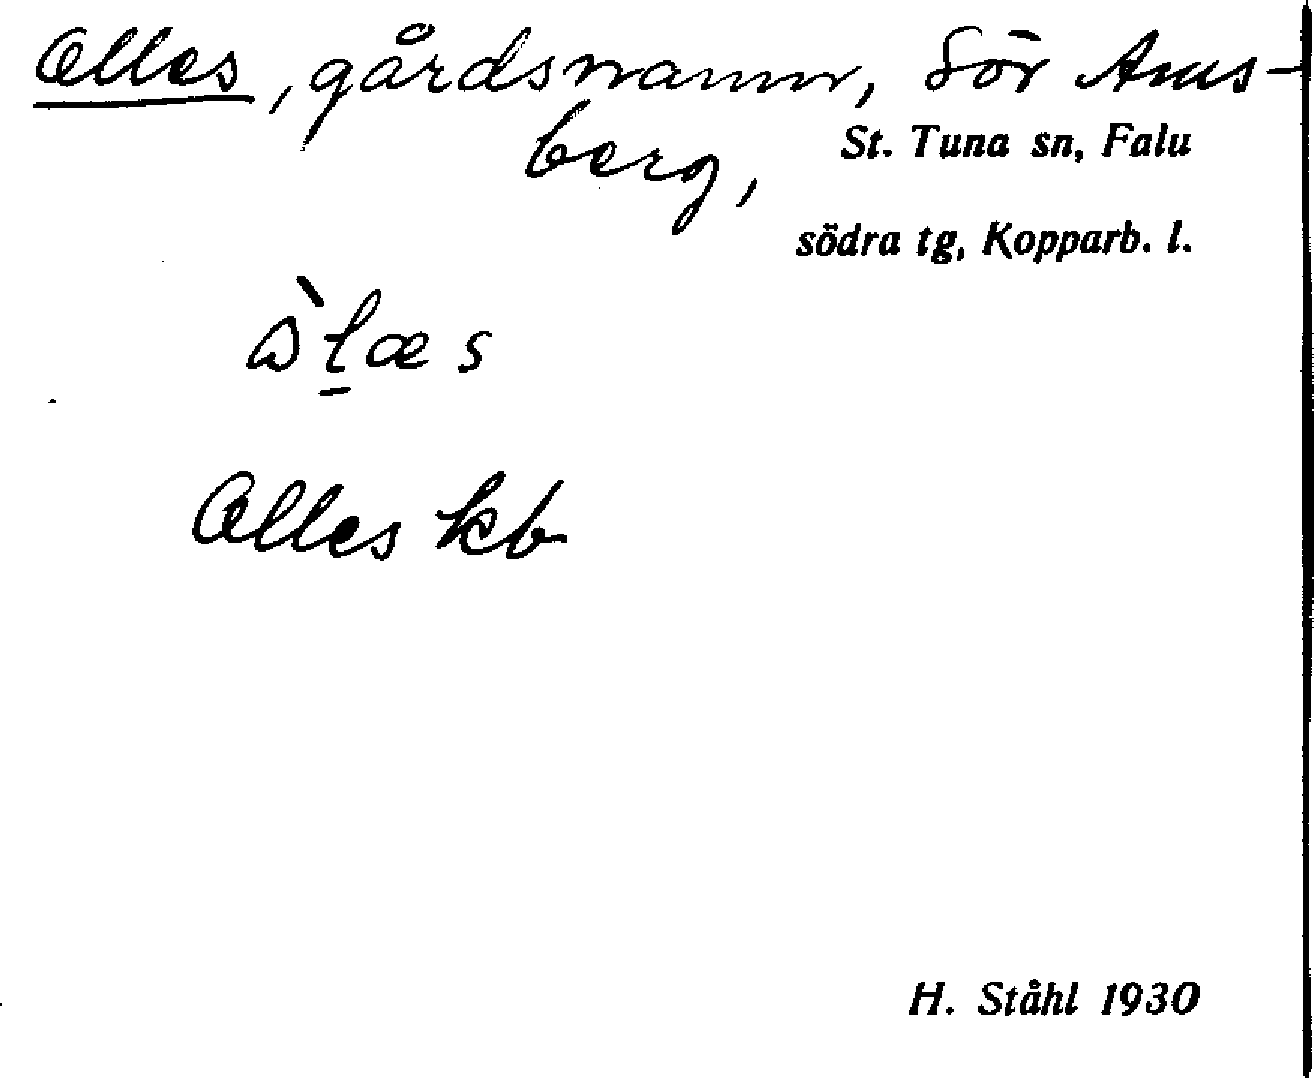 Olles, gårdsnamn, Sör Ams-
berg,
St. Tuna sn, Falu
södra tg, Kopparb. l.
Olles kb
H. Ståhl 1930